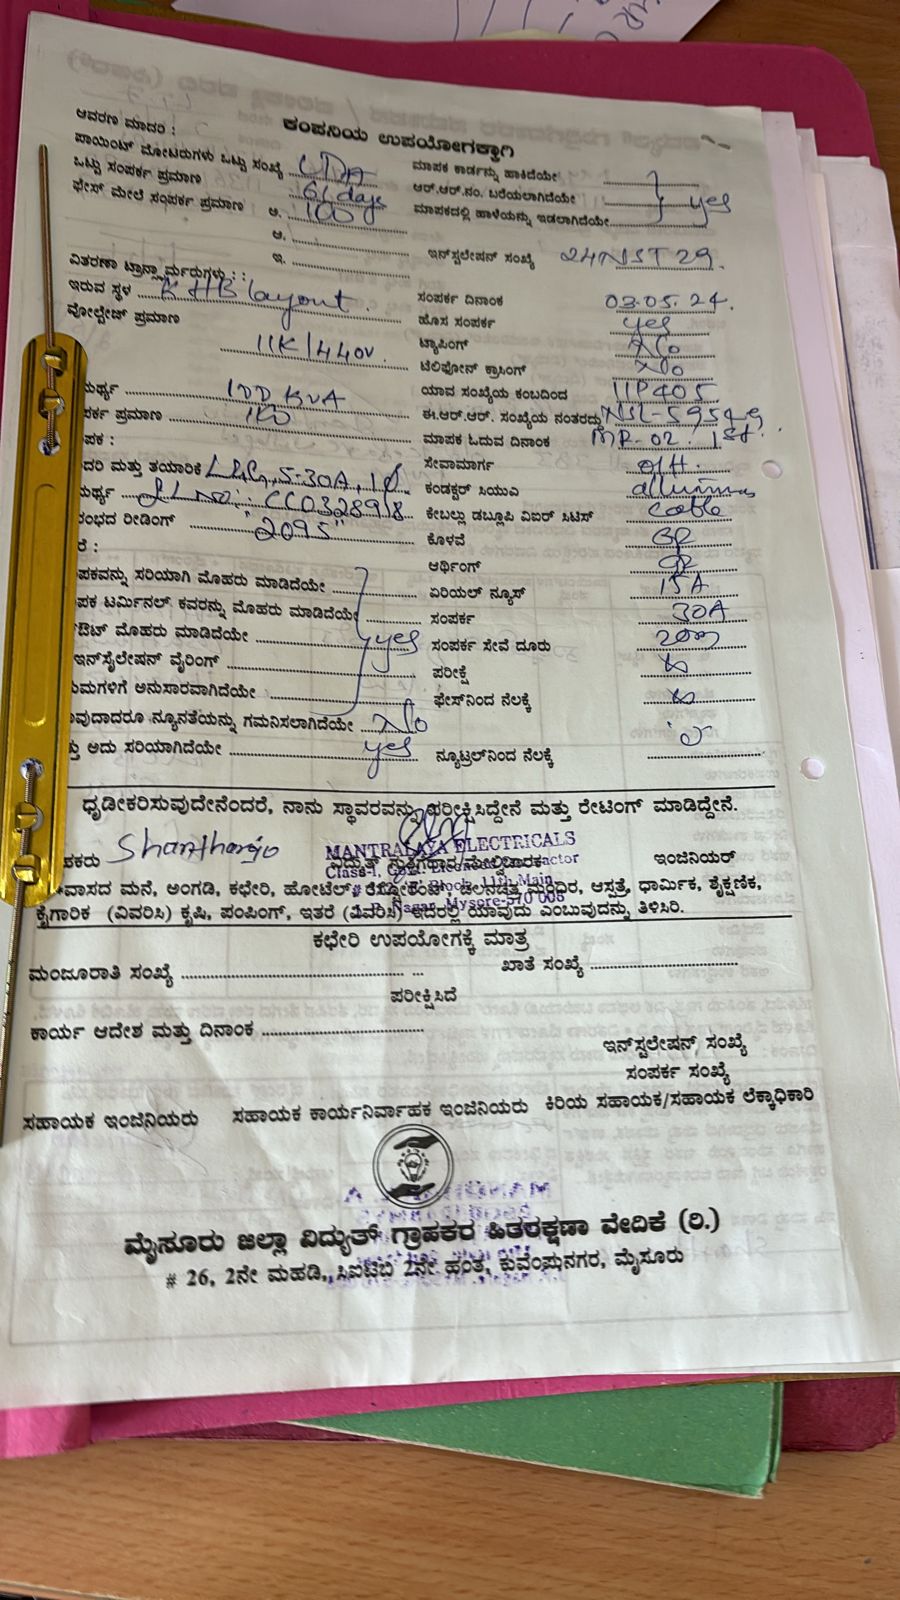 ಕಂಪನಿಯ ಉಪಯೋಗಕ್ಕಾಗಿ
ಆವರಣ ಮಾದರಿ :
ಪಾಯಿಂಟ್ ಮೋಟರುಗಳು ಒಟ್ಟು ಸಂಖ್ಯೆ
ಮಾಪಕ ಕಾರ್ಡನ್ನು ಹಾಕಿದೆಯೇ
ಒಟ್ಟು ಸಂಪರ್ಕ ಪ್ರಮಾಣ
ಆರ್.ಆರ್.ನಂ. ಬರೆಯಲಾಗಿದೆಯೇ yes
ಫೇಸ್ ಮೇಲೆ ಸಂಪರ್ಕ ಪ್ರಮಾಣ ಅ. 100
ಮಾಪಕದಲ್ಲಿ ಹಾಳೆಯನ್ನು ಇಡಲಾಗಿದೆಯೇ
ಆ.
ಇ.
ಇನ್‌ಸ್ಟಲೇಷನ್ ಸಂಖ್ಯೆ 24NST29.
ವಿತರಣಾ ಟ್ರಾನ್ಸ್‌ಫಾರ್ಮರುಗಳು : :
ಇರುವ ಸ್ಥಳ KHB layout.
ಸಂಪರ್ಕ ದಿನಾಂಕ 03.05.24.
ವೋಲ್ಟೇಜ್ ಪ್ರಮಾಣ 11K/440V.
ಹೊಸ ಸಂಪರ್ಕ yes
ಟ್ಯಾಪಿಂಗ್ No
ಟೆಲಿಫೋನ್ ಕ್ರಾಸಿಂಗ್ No
ಮರ್ಥ್ಯ 100 KVA
ಯಾವ ಸಂಖ್ಯೆಯ ಕಂಬದಿಂದ 11P405
ಪರ್ಕ ಪ್ರಮಾಣ
ಈ.ಆರ್.ಆರ್. ಸಂಖ್ಯೆಯ ನಂತರದ್ದು
ಪಕ :
ಮಾಪಕ ಓದುವ ದಿನಾಂಕ MR-02. 1st.
ದರಿ ಮತ್ತು ತಯಾರಿಕೆ 5-30A, 1Ø.
ಸೇವಾಮಾರ್ಗ O/H.
ಮರ್ಥ್ಯ SL NO: CC0328918
ಕಂಡಕ್ಟರ್ ಸಿಯುಎ
ರಂಭದ ರೀಡಿಂಗ್ "2095"
ಕೇಬಲ್ಲು ಡಬ್ಲೂಪಿ ವಿಐರ್ ಸಿಟಿಸ್ Cable
ರೆ :
ಕೊಳವೆ
ಆರ್ಥಿಂಗ್
ಪಕವನ್ನು ಸರಿಯಾಗಿ ಮೊಹರು ಮಾಡಿದೆಯೇ
ಏರಿಯಲ್ ನ್ಯೂಸ್ 15A
ಪಕ ಟರ್ಮಿನಲ್ ಕವರನ್ನು ಮೊಹರು ಮಾಡಿದೆಯೇ
ಸಂಪರ್ಕ 30A
ಔಟ್ ಮೊಹರು ಮಾಡಿದೆಯೇ yes
ಸಂಪರ್ಕ ಸೇವೆ ದೂರು 20m
ಇನ್‌ಸ್ಟೆಲೇಷನ್ ವೈರಿಂಗ್
ಪರೀಕ್ಷೆ
ಯಮಗಳಿಗೆ ಅನುಸಾರವಾಗಿದೆಯೇ
ಫೇಸ್‌ನಿಂದ ನೆಲಕ್ಕೆ
ವುದಾದರೂ ನ್ಯೂನತೆಯನ್ನು ಗಮನಿಸಲಾಗಿದೆಯೇ No
ತ್ತು ಅದು ಸರಿಯಾಗಿದೆಯೇ yes
ನ್ಯೂಟ್ರಲ್‌ನಿಂದ ನೆಲಕ್ಕೆ
ಧೃಡೀಕರಿಸುವುದೇನೆಂದರೆ, ನಾನು ಸ್ಥಾವರವನ್ನು ಪರೀಕ್ಷಿಸಿದ್ದೇನೆ ಮತ್ತು ರೇಟಿಂಗ್ ಮಾಡಿದ್ದೇನೆ.
ಪಕರು
MANTRALAYA ELECTRICALS
ವಿದ್ಯುತ್ ಗುತ್ತಿಗೆದಾರ/ಮೇಲ್ವಿಚಾರಕ
ಇಂಜಿನಿಯರ್
Block, 11th Main
Nagar, Mysore-570 008
ವಾಸದ ಮನೆ, ಅಂಗಡಿ, ಕಛೇರಿ, ಹೋಟೆಲ್, ರೆಸ್ಟೋರೆಂಟ್, ಚಲನಚಿತ್ರ ಮಂದಿರ, ಆಸ್ಪತ್ರೆ, ಧಾರ್ಮಿಕ, ಶೈಕ್ಷಣಿಕ,
ಕೈಗಾರಿಕ (ವಿವರಿಸಿ) ಕೃಷಿ, ಪಂಪಿಂಗ್, ಇತರೆ (ವಿವರಿಸಿ) ಇದರಲ್ಲಿ ಯಾವುದು ಎಂಬುವುದನ್ನು ತಿಳಿಸಿರಿ.
ಕಛೇರಿ ಉಪಯೋಗಕ್ಕೆ ಮಾತ್ರ
ಮಂಜೂರಾತಿ ಸಂಖ್ಯೆ
ಖಾತೆ ಸಂಖ್ಯೆ
ಪರೀಕ್ಷಿಸಿದೆ
ಕಾರ್ಯ ಆದೇಶ ಮತ್ತು ದಿನಾಂಕ
ಇನ್‌ಸ್ಟಲೇಷನ್ ಸಂಖ್ಯೆ
ಸಂಪರ್ಕ ಸಂಖ್ಯೆ
ಸಹಾಯಕ ಇಂಜಿನಿಯರು ಸಹಾಯಕ ಕಾರ್ಯನಿರ್ವಾಹಕ ಇಂಜಿನಿಯರು ಕಿರಿಯ ಸಹಾಯಕ/ಸಹಾಯಕ ಲೆಕ್ಕಾಧಿಕಾರಿ
ಮೈಸೂರು ಜಿಲ್ಲಾ ವಿದ್ಯುತ್ ಗ್ರಾಹಕರ ಹಿತರಕ್ಷಣಾ ವೇದಿಕೆ (ರಿ.)
# 26, 2ನೇ ಮಹಡಿ,, ಸಿಐಟಿಬಿ 2ನೇ ಹಂತ, ಕುವೆಂಪುನಗರ, ಮೈಸೂರು